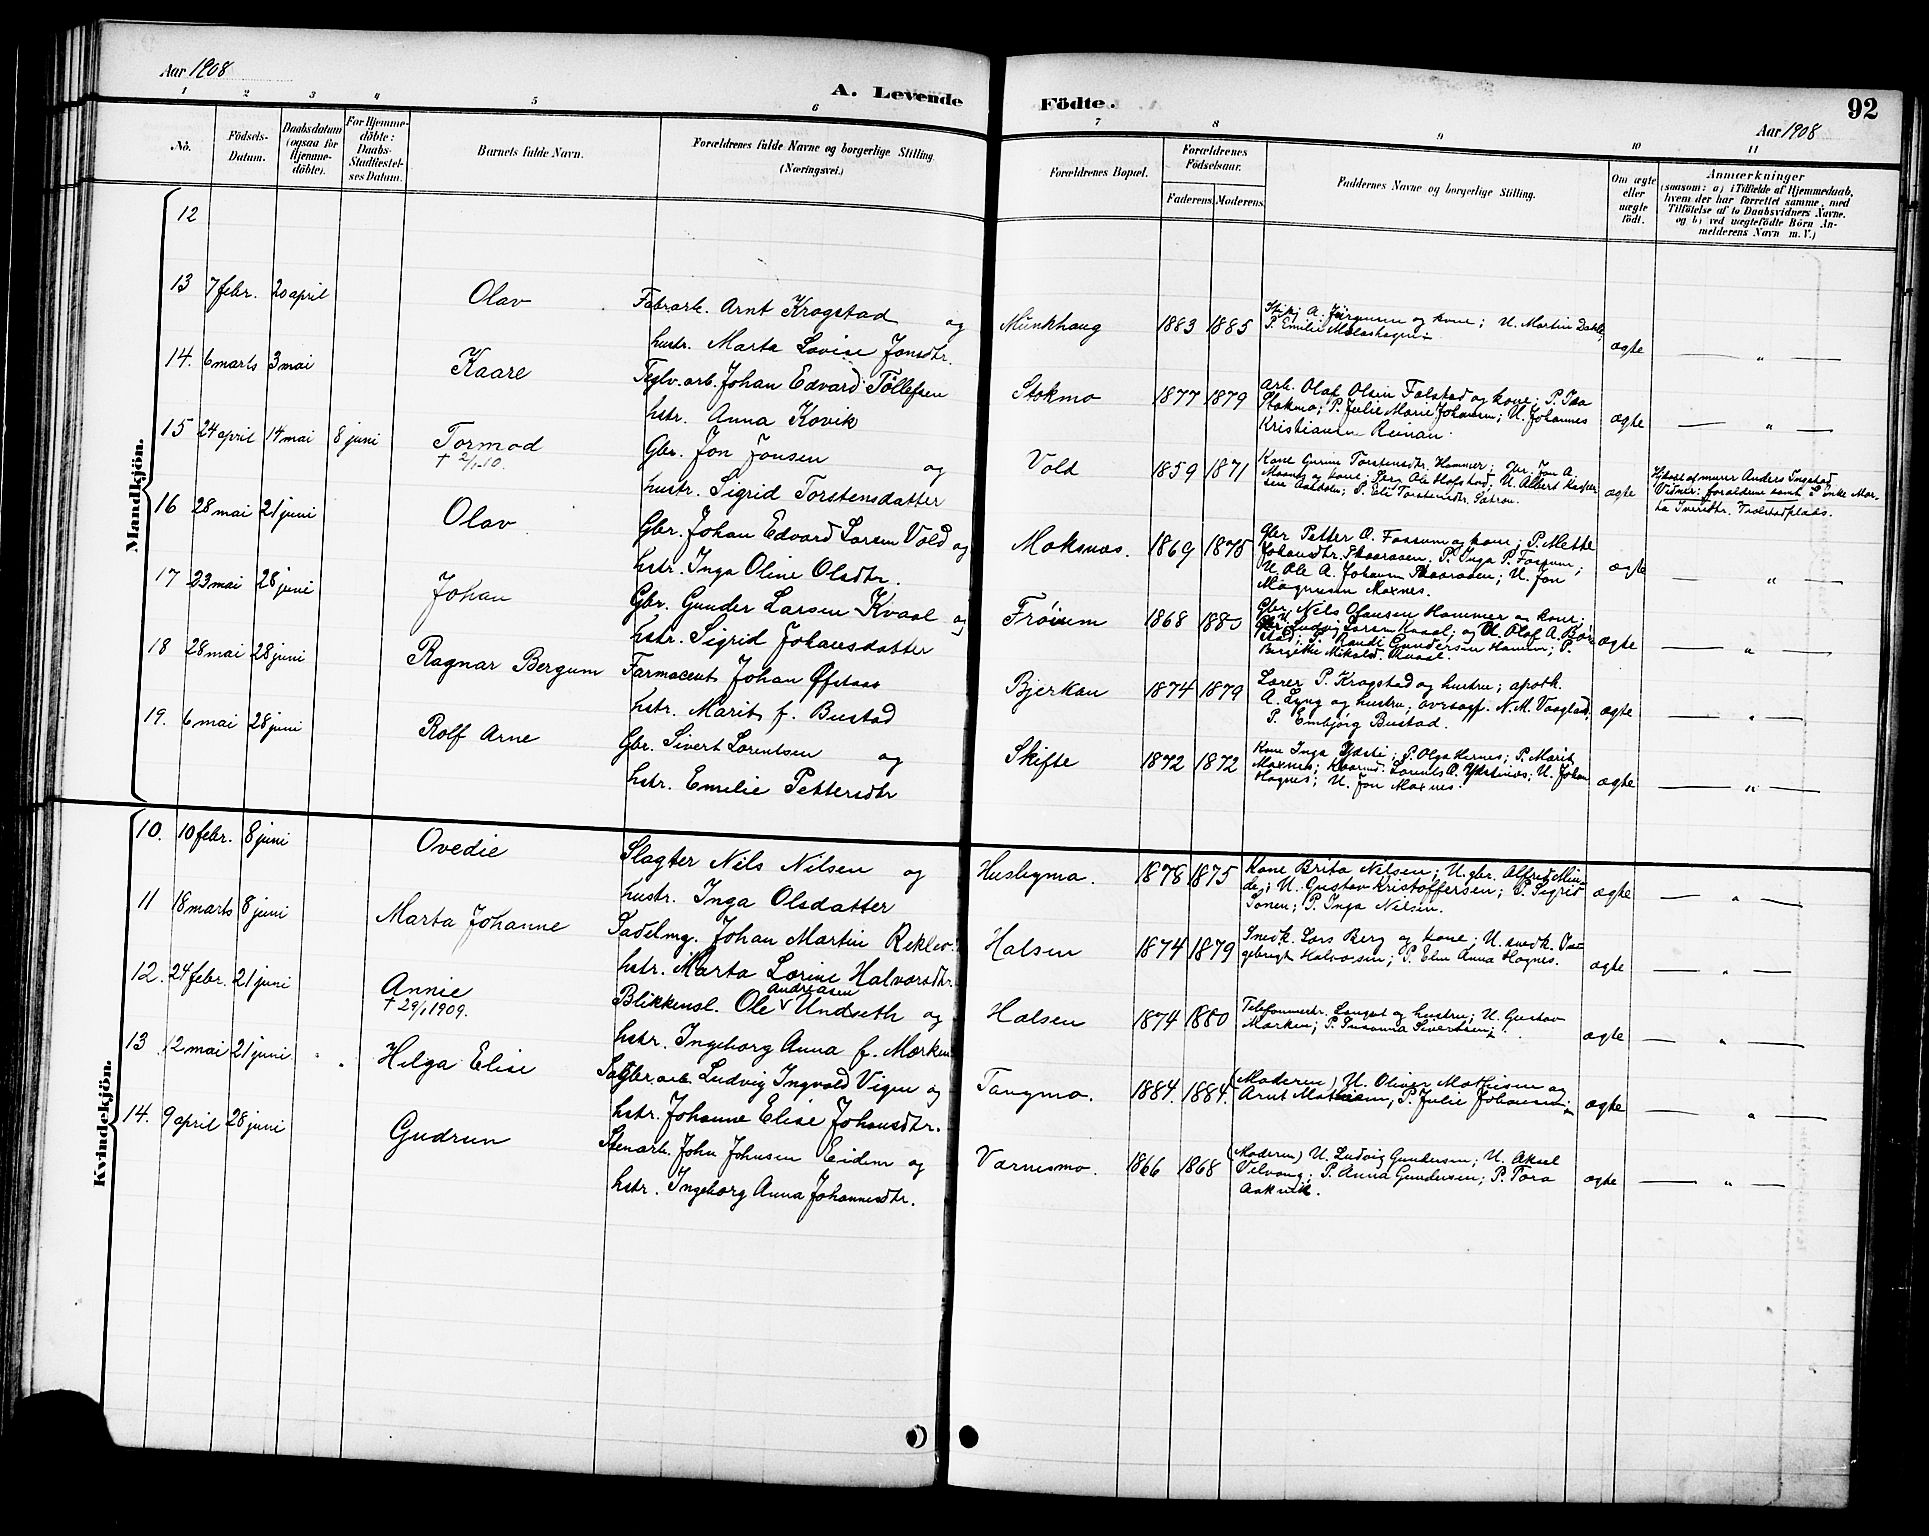 Aar 1908
A. Levende Födte.
92
Aar 1908
1 2 3 4 5 6 7 8 9 10 11
No.
Födsels-Datum.
Daabsdatum (ogsaa for Hjemme-döbte).
For Hjemme-döbte: Daabs-Stadfæstel-ses Datum.
Barnets fulde Navn.
Forældrenes fulde Navne og borgerlige Stilling (Næringsvei.)
Forældrenes Bopæl.
Forældrenes Födselsaar.
Faderens. Moderens.
Faddernes Navne og borgerlige Stilling.
Om ægte eller uægte födt.
Anmærkninger
(saasom: a) i Tilfælde af Hjemmedaab,
hvem der har forrettet samme, med
Tilföielse af to Daabsvidners Navne.
og b) ved uægtefödte Börn An-
melderens Navn m. V.)
Mandkjön.
12
13 7 febr. 20 april Olav Fabrarb. Arnt Krogstad og
hustr. Marta Lovise Jonsdtr.
Munkhaug 1883 1885
A. Jörgensen og kone; U. Martin Dahle,
P. Emilie
ægte — " —
14. 6 marts 3 mai Kaare Teglv.arb. Johan Edvard Tollefsen
hstr. Anna Kovik
Stokmo 1877 1879
arb. Olaf Olsen Folstad og kone; P. Ida
Stokmo; P. Julie Marie Johansen; U. Johannes
Kristiansen Reinan.
ægte — " —
15 24 april 14 mai 8 juni Tormod Gbr. Jon Jonsen og
† 2/1-10.
hustr. Sigrid Torstensdatter
Vold 1859 1871
Kone Gurine Torstensdtr. Hammer; Gbr. Jon A.
Moxnes og kone; Ole Hofstad; U. Albert
P. Eli Torstensdtr.
ægte
Hjdøbt af murer Anders Ingstad
Vidner: forældrene samt Enke Mar-
ta Iversdtr. Trolstadplads.
16 28 mai 21 juni Olav Gbr. Johan Edvard Larsen Vold og
hstr. Inga Oline Olsdtr.
Moksnes. 1869 1875
Gbr. Petter O. Fossum og kone; P. Mette
Johansdtr. Skaaraasen; P. Inga P. Fossum;
U. Ole A. Johansen Skaaraasen; U. Jon
Magnusen Moxnes.
ægte — " —
17 23 mai 28 juni Johan Gbr. Gunder Larsen Kvaal og
hstr. Sigrid Johansdatter
Frøisem 1868 1880
Gbr. Nils Olausen Hammer og kone;
Ludvig Larsen Kvaal; og U. Olaf A. Bør-
stad; P. Randi Gundersen Hamm; P.
Birgitte Mikalsd. Kvaal.
ægte — " —
18 28 mai 28 juni Ragnar Bergum Farmaceut Johan Øfstaas
hstr. Marit f. Bustad
Bjerkan 1874 1879
Lærer P. Krogstad og hustru; apoth.
A. Lyng og hustru; N. M. Vogstad,
P. Embjörg Bustad.
ægte — " —
19. 6 mai 28 juni Rolf Arne Gbr. Sivert Lorentsen og
hstr. Emilie Pettersdtr
Skifte 1872 1872
Kone Inga Ydsti; P. Olga Hernes; P. Marit
Moxnes; Lorents A. Ydstines; U. Johan
Hognes; U. Jon Moxnes.
ægte — " —
Kvindekjön.
10. 10 febr. 8 juni Ovedie Slagter Nils Nilsen og
hustr. Inga Olsdatter
Husbymo. 1878 1875
Kone Brita Nilsen; U. gbr. Alfred Min-
de; U. Gustav Kristoffersen; P. Sigrid
Sonen; P. Inga Nilsen.
ægte — " —
11 18 marts 8 juni Marta Johanne Sadelmg. Johan Martin Reklev
hstr. Marta Lorine Halvorsdtr.
Halsen 1874 1879
Snedk. Lars Berg og kone; U. snedk. In-
gebrigt Halvorsen; P. Elen Anna Hognes.
ægte — " —
12. 24 febr. 21 juni Annie Blikkensl. Ole Andreasen Undseth og
† 29/1 1909.
hstr. Ingeborg Anna f. Marken
Halsen 1874 1880
Telefonmestr. Langset og hustru; U. Gustav
Marken; P. Susanna Sivertsen.
ægte — " —
13 12 mai 21 juni Helga Elise Sagbr.arb. Ludvig Ingvald Vigen og
hstr. Johanne Elise Johansdtr.
Tangmo. 1884. 1884.
(Moderen) U. Oliver Mathisen og
Arnt Mathisen, P. Julie Johansen;
ægte — " —
14. 9 april 28 juni Gudrun Stenarb. John Johnsen Eidem og
hstr. Ingeborg Anna Johannesdtr.
Værnesmo. 1866 1868
(Moderen) U. Ludvig Gundersen; U. Aksel
Velvang; P. Anna Gundersen; P. Tora
Aakvik.
ægte — " —